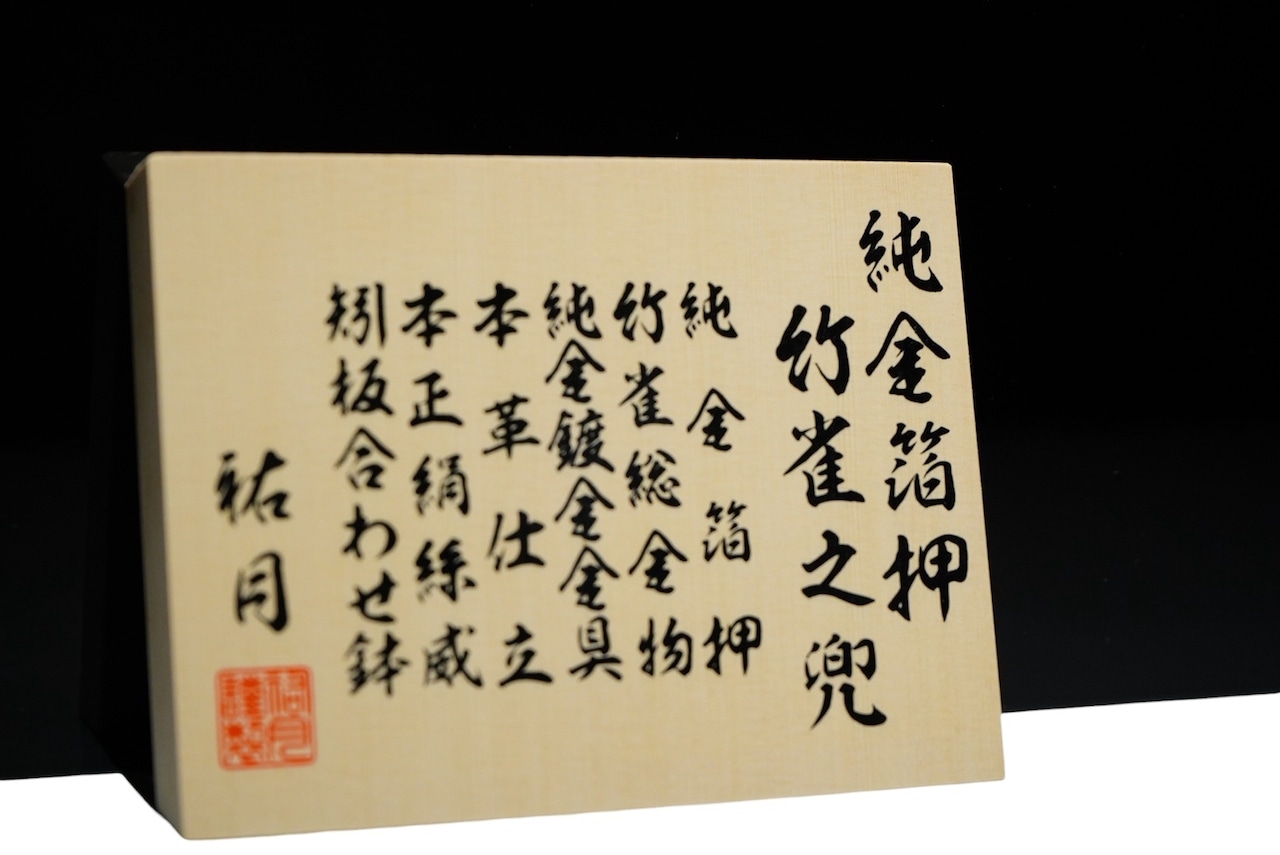 純金箔押
竹雀之兜
純金箔押
竹雀総金物
純金鍍金金具
本革仕立
本正絹絲威
矧板合わせ鉢
祐月
祐月謹製